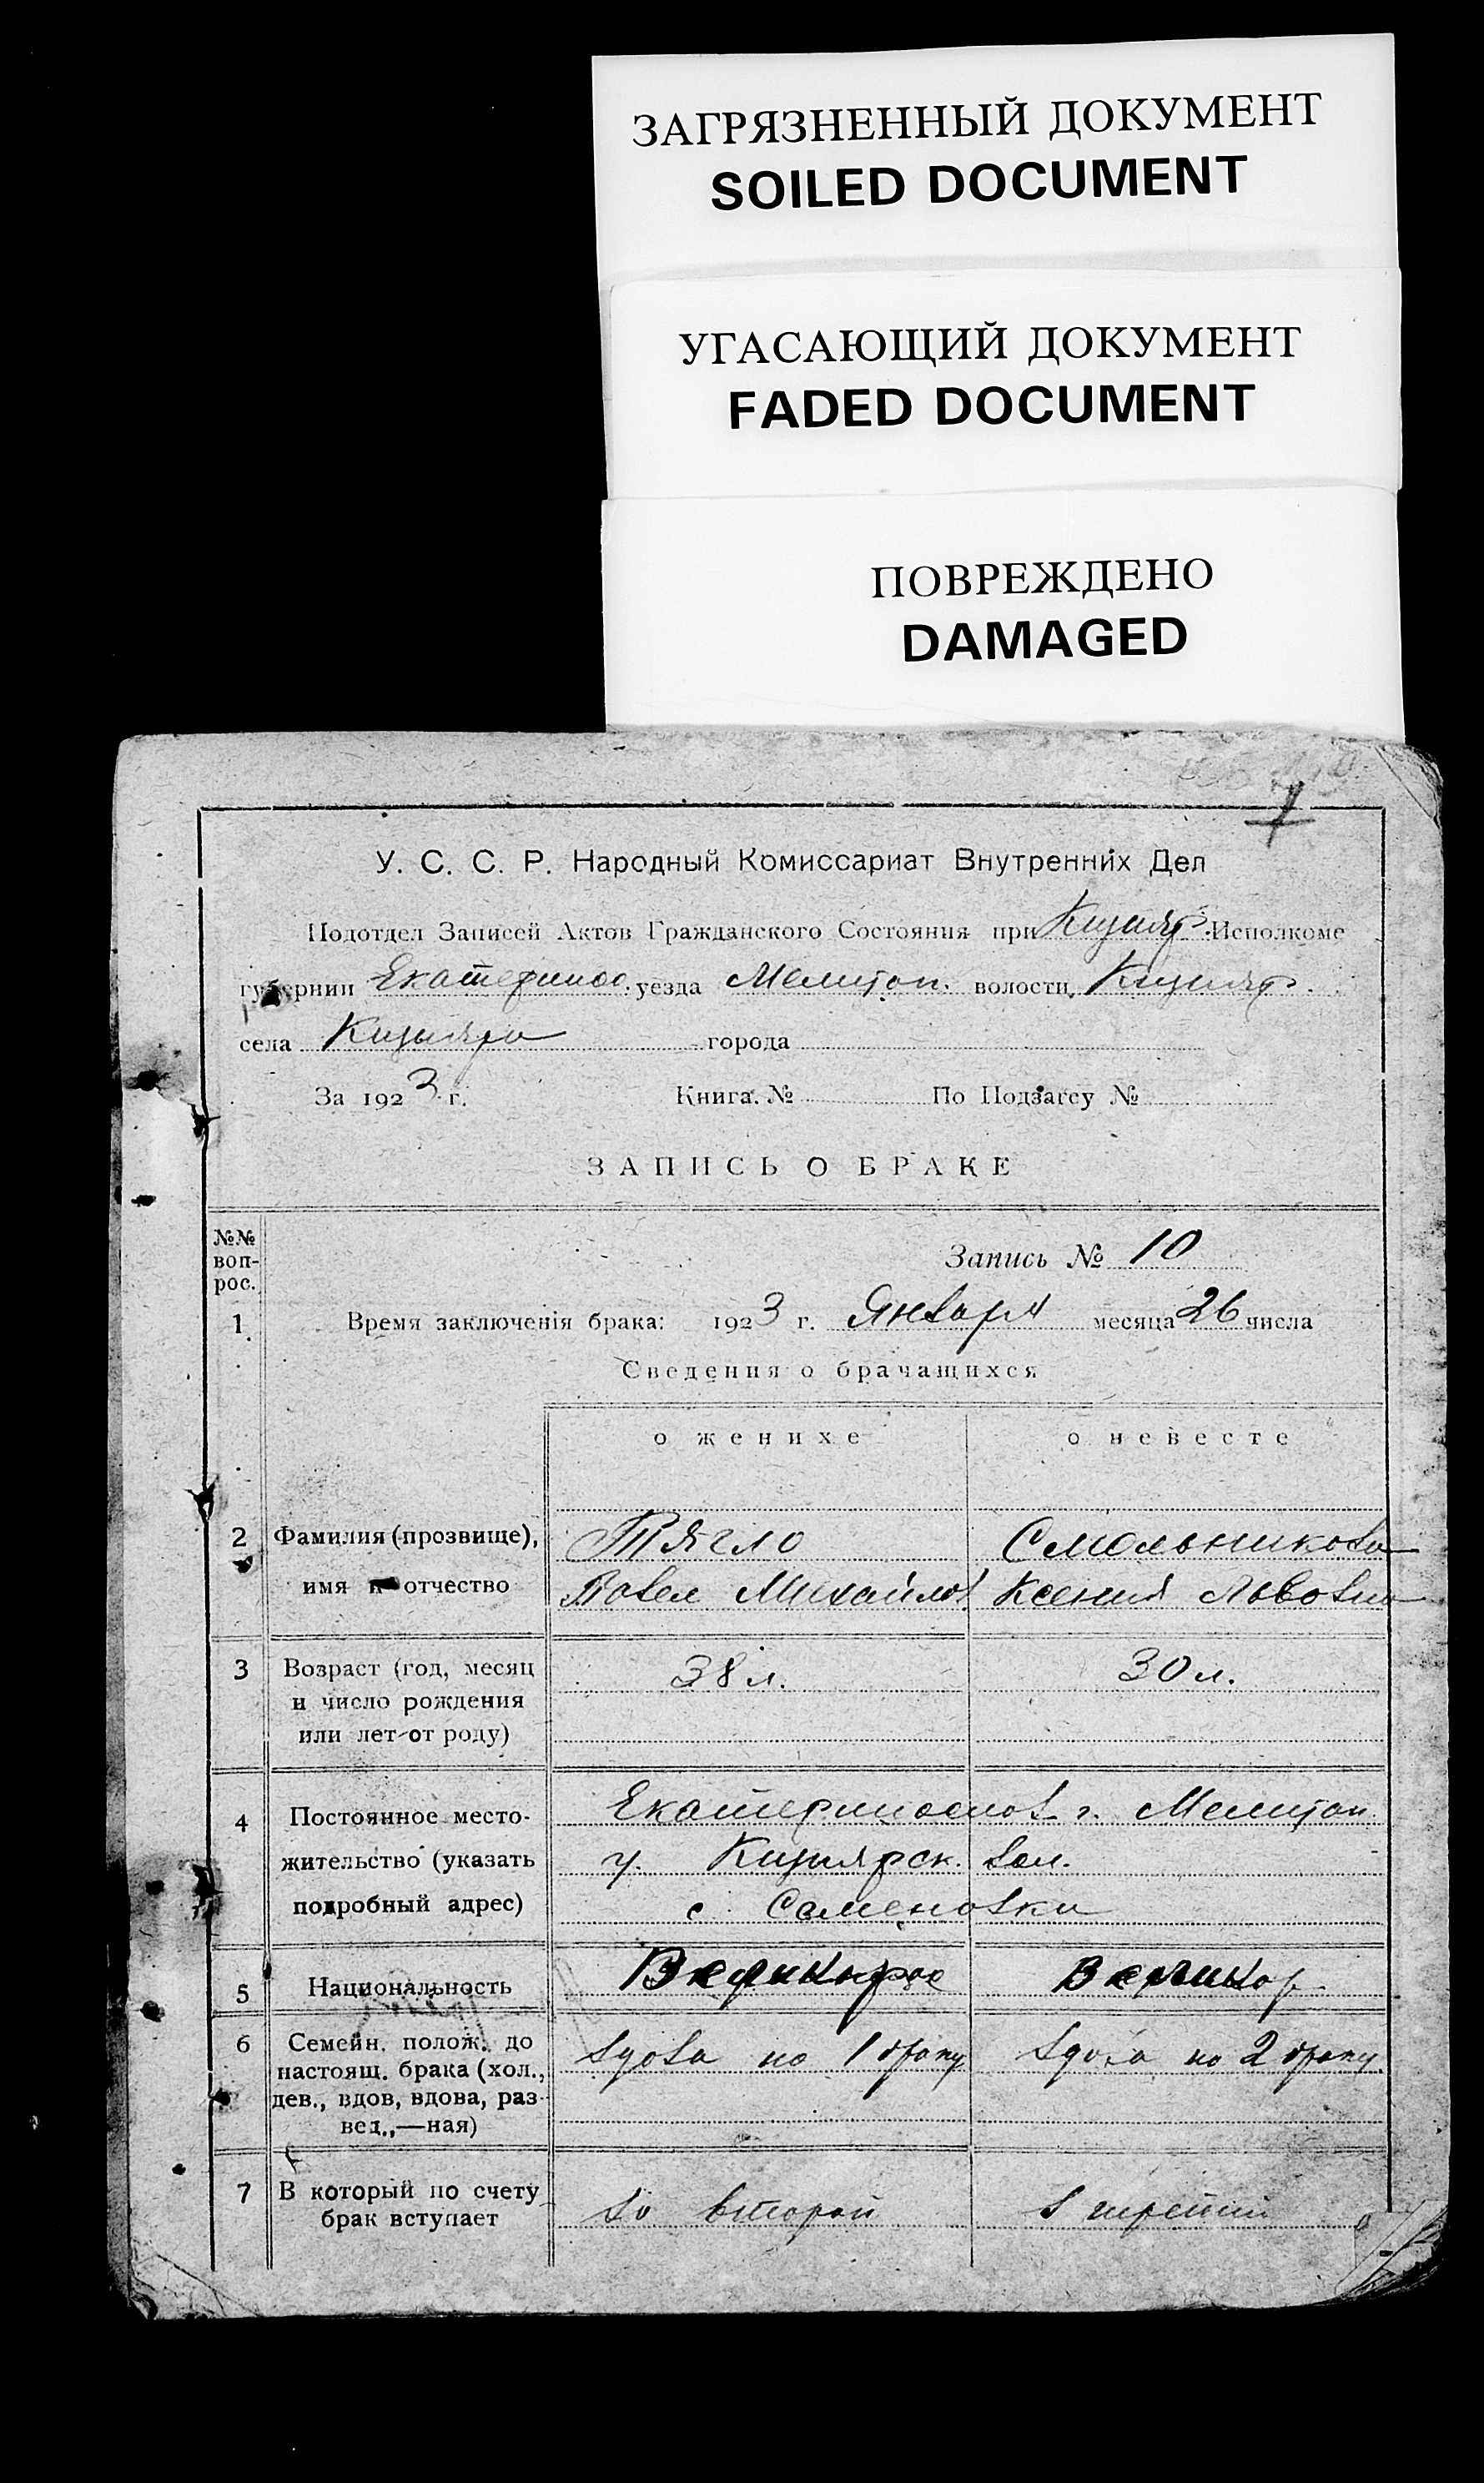 ЗАГРЯЗНЕННЫЙ ДОКУМЕНТ
SOILED DOCUMENT
УГАСАЮЩИЙ ДОКУМЕНТ
FADED DOCUMENT
ПОВРЕЖДЕНО
DAMAGED
У. С. С. Р. Народный Комиссариат Внутренних Дел
Подотдел Записей Актов Гражданского Состояния при Кизияр. Исполкоме
губернии Екатеринос. уезда Мелитоп. волости Кизияр.
села Кизияра города
За 1923 г. Книга № По Подзагсу №
ЗАПИСЬ О БРАКЕ
№№ воп-рос.
Запись № 10
1. Время заключенія брака: 1923 г. Января месяца 26 числа
Сведения о брачащихся
о женихе о невесте
2 Фамилия (прозвище), Тягло Смольникова
имя и отчество Павел Михайлов Ксения Львовна
3 Возраст (год, месяц 38 л. 30 л.
и число рождения
или лет от роду)
4 Постоянное место- Екатеринослов г. Мелитоп.
жительство (указать у. Кизиярск. вол.
подробный адрес) с. Семеновки
5 Национальность Великорос Великор
6 Семейн. полож. до вдова по 1 браку вдова по 2 браку
настоящ. брака (хол.,
дев., вдов, вдова, раз-
вед.,—ная)
7 В который по счету во второй в третий
брак вступает